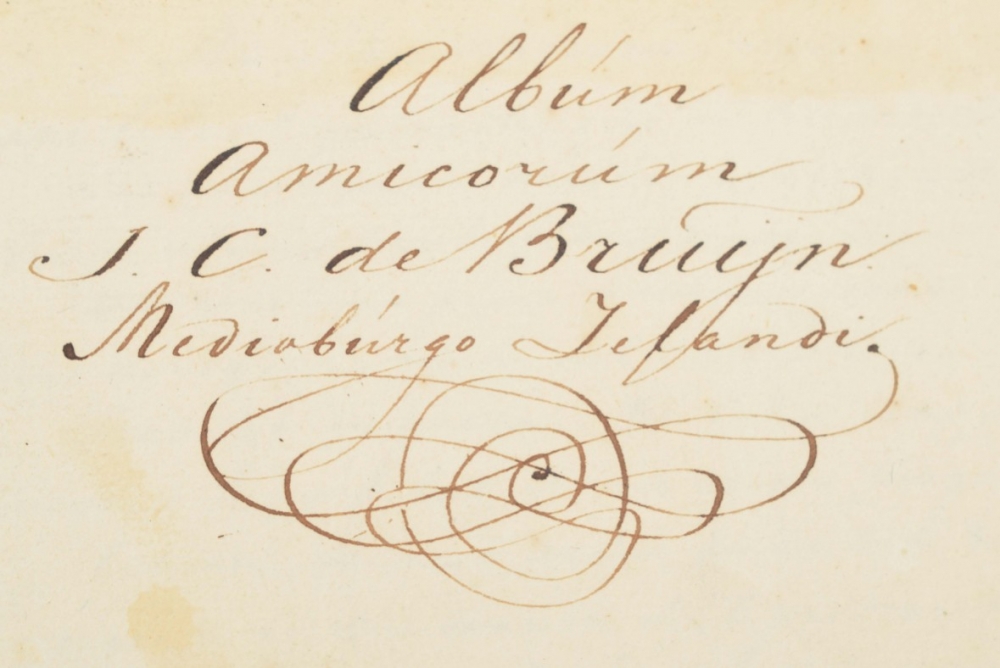 Albúm
Amicorúm
J. C. de Bruyn
Mediobúrgo Zelandi.